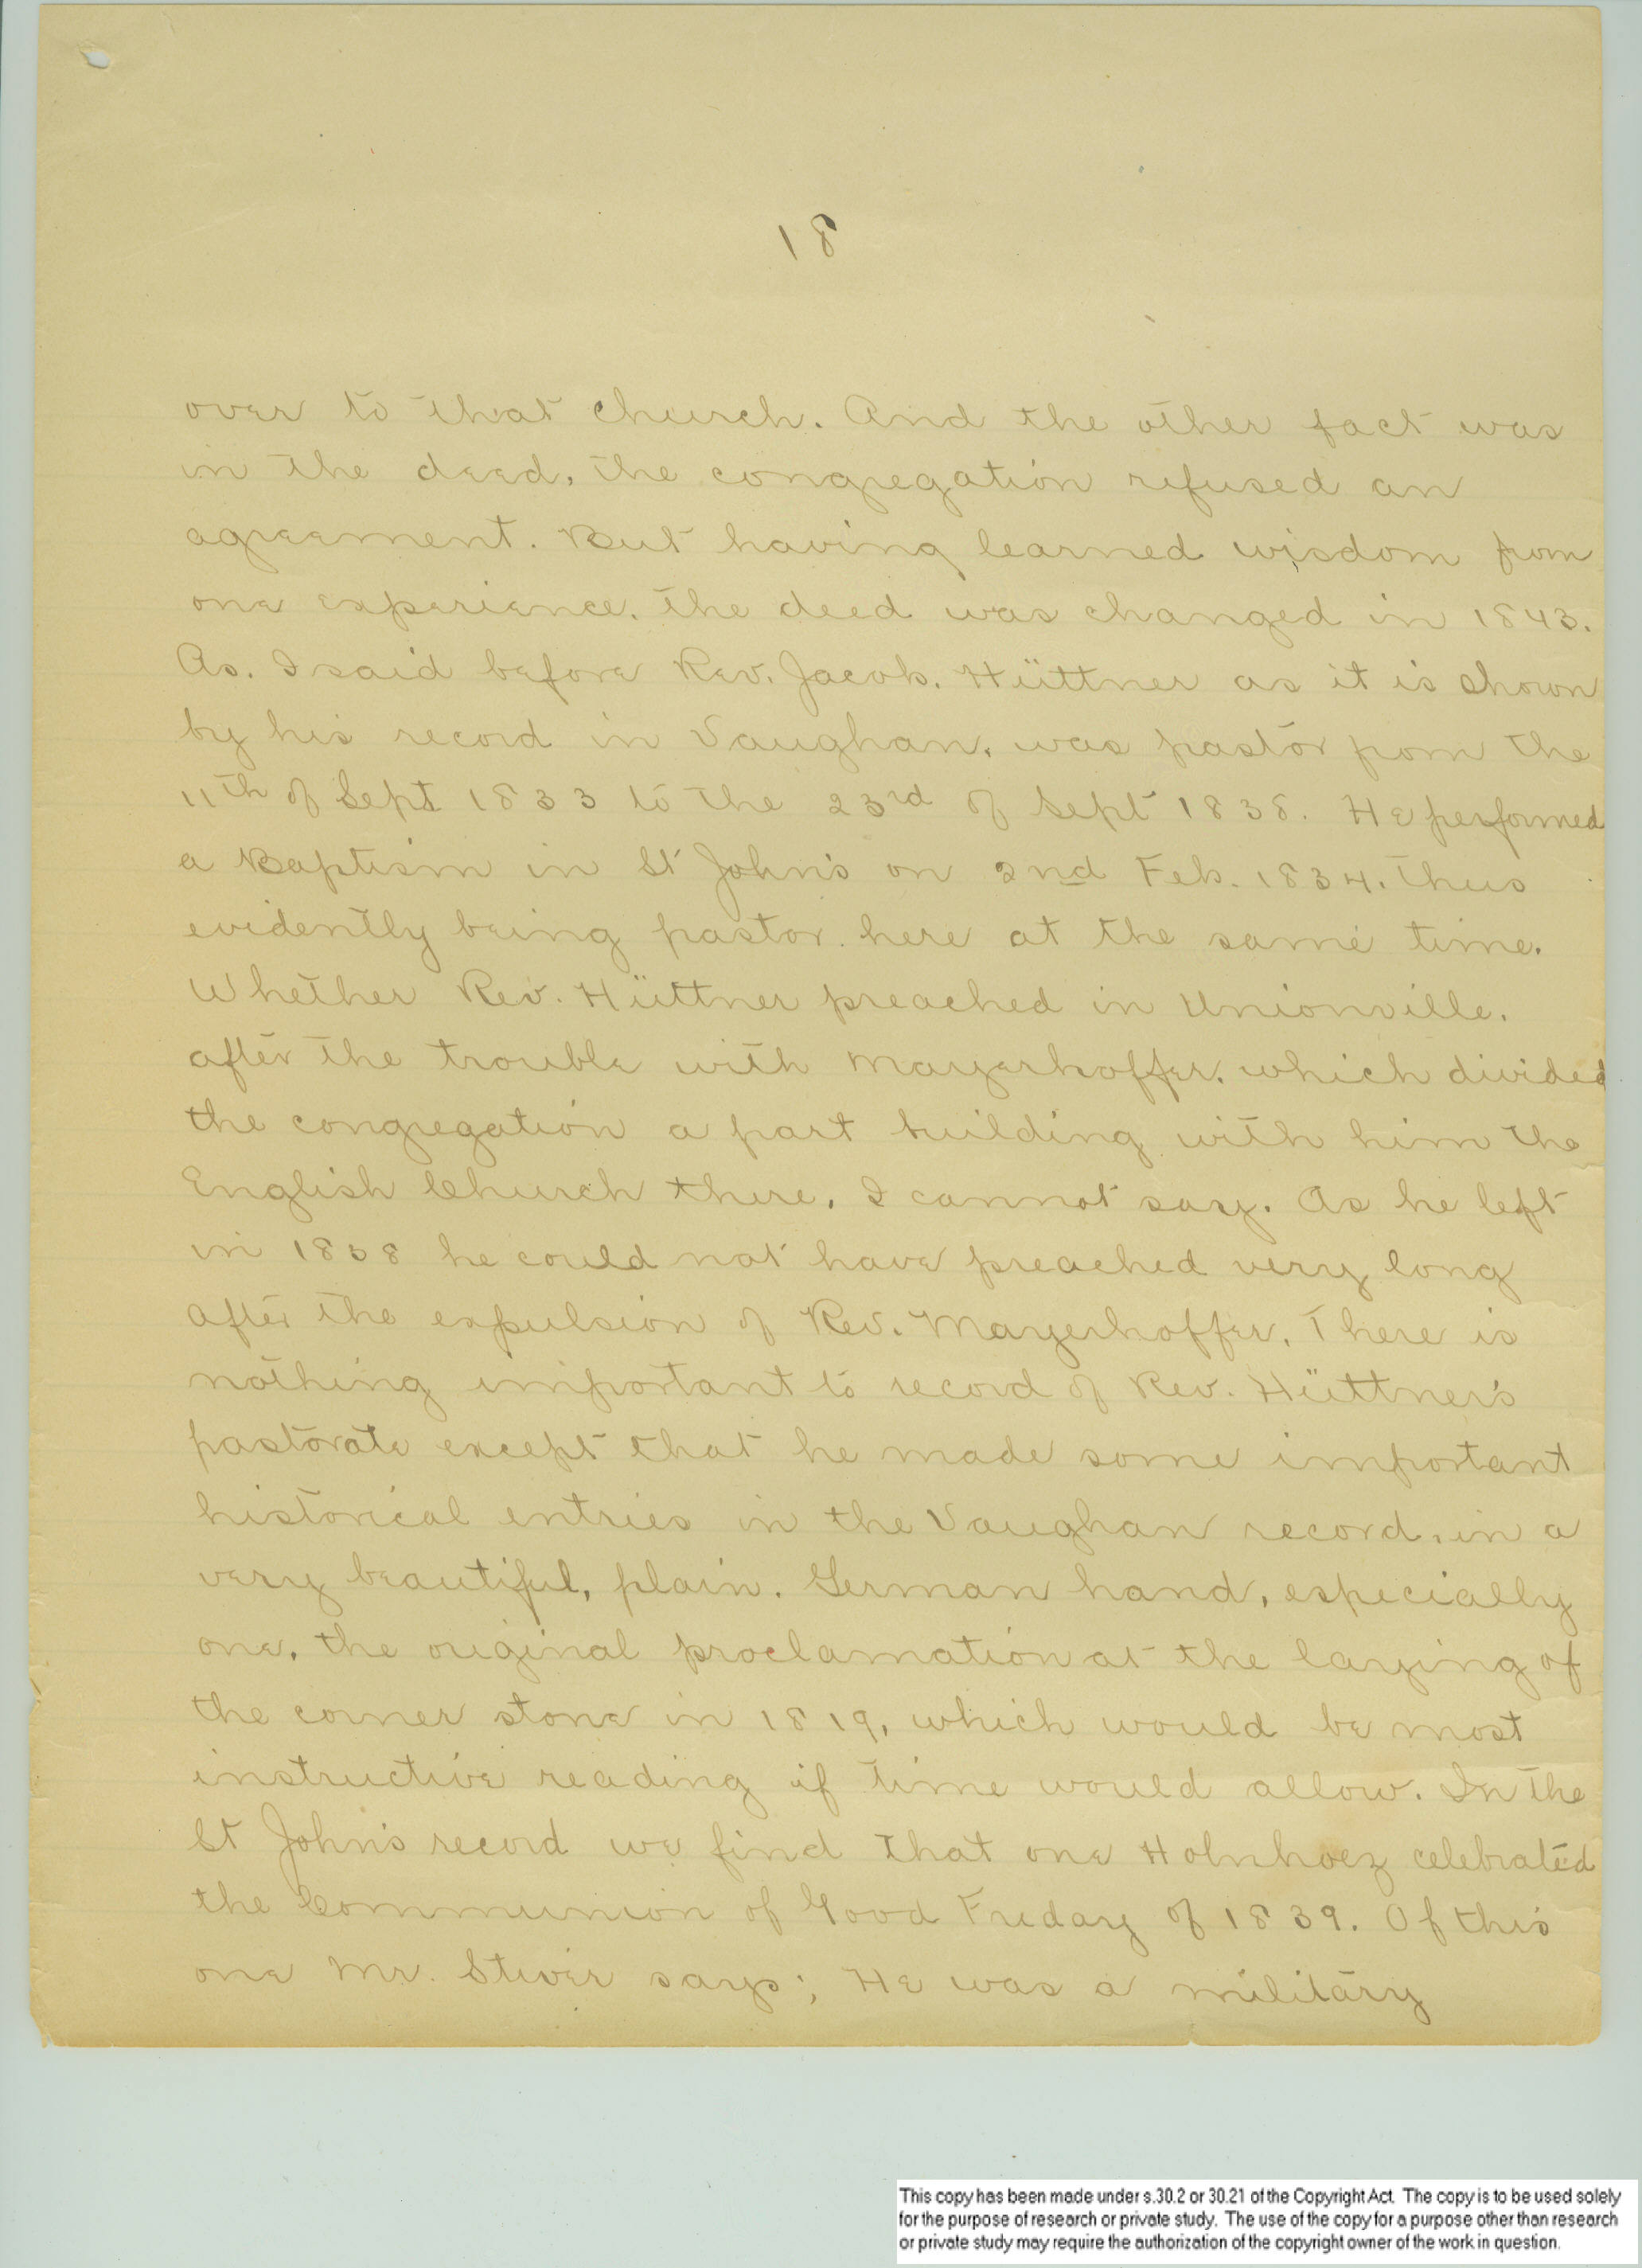 18
over to that church. And the other fact was
in the deed, the congregation refused an
agreement. But having learned wisdom from
one experience. the deed was changed in 1843.
As. I said before Rev. Jacob. Hüttner as it is shown
by his record in Vaughan, was pastor from the
11th of Sept 1833 to the 23rd of Sept 1838. He performed
a Baptism in St John's on 2nd Feb. 1834. thus
evidently being pastor here at the same time.
Whether Rev. Hüttner preached in Unionville.
after the trouble with Mayerhoffer. which divided
the congregation a part building with him the
English Church there, I cannot say. As he left
in 1838 he could not have preached very long
after the expulsion of Rev. Mayerhoffer. There is
nothing important to record of Rev. Hüttner's
pastorate except that he made some important
historical entries in the Vaughan record, in a
very beautiful, plain. German hand, especially
one, the original proclamation at the laying of
the corner stone in 1819, which would be most
instructive reading if time would allow. In the
St John's record we find that one Holnhoez celebrated
the Communion of Good Friday of 1839. Of this
one Mr. Stiver says; He was a military
This copy has been made under s.30.2 or 30.21 of the Copyright Act. The copy is to be used solely
for the purpose of research or private study. The use of the copy for a purpose other than research
or private study may require the authorization of the copyright owner of the work in question.